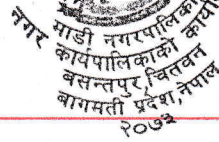 माडी नगरपालिका
नगर कार्यपालिकाको कार्या
बसन्तपुर, चितवन
बागमती प्रदेश, नेपाल
२०७३